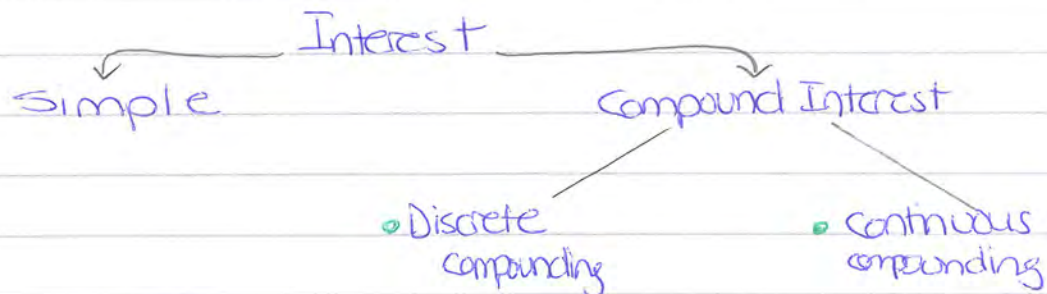 Interest
Simple
Compound Interest
Discrete
compounding
Continuous
compounding